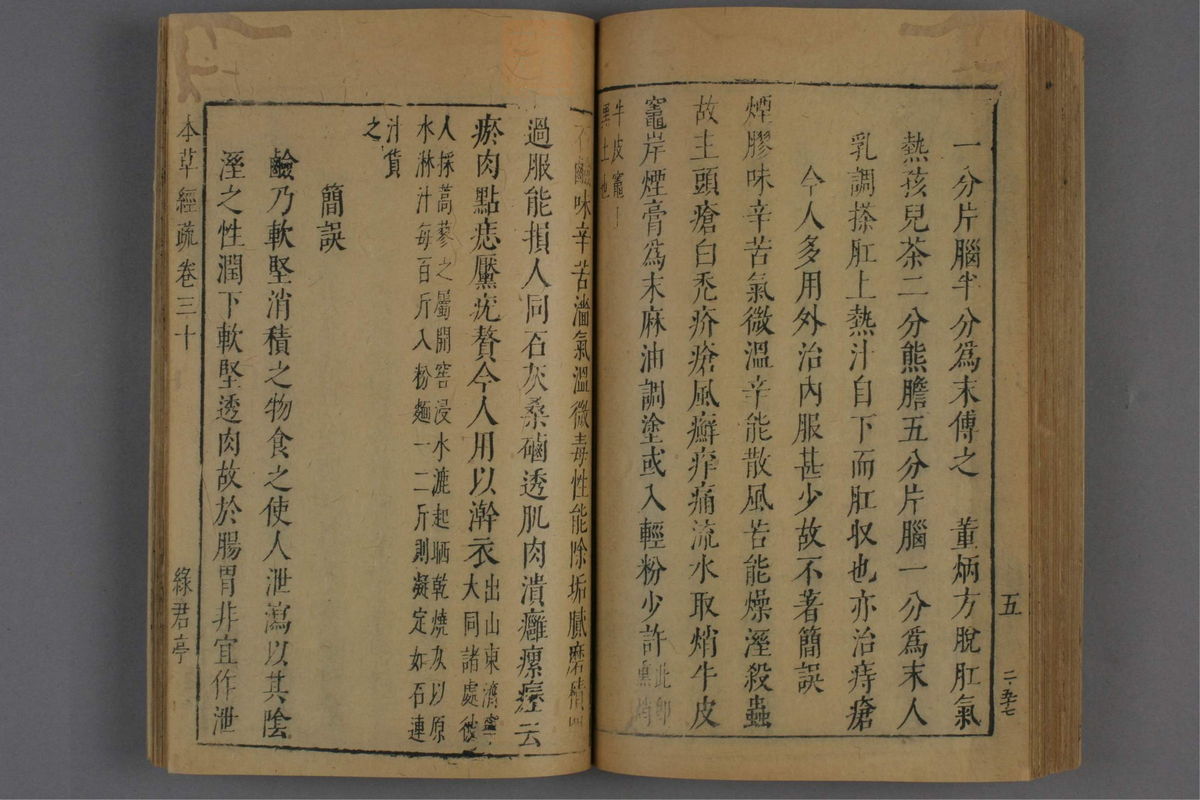 一分片腦半分爲末傅之　董炳方脫肛氣
熱孩兒茶二分熊膽五分片腦一分爲末人
乳調搽肛上熱汁自下而肛収也亦治痔瘡
今人多用外治內服甚少故不著簡誤
煙膠味辛苦氣微溫辛能散風苦能燥溼殺蟲
故主頭瘡白禿疥瘡風癬痒痛流水取焇牛皮
竈岸煙膏爲末麻油調塗或入輕粉少許
北卽
熏焇
牛皮竈
黑土也
五
味辛苦濇氣溫微毒性能除垢膩磨積
過服能損人同石灰桑礆透肌肉潰癰瘰瘞云
瘀肉點痣黶疣贅今人用以澣衣
出山東濟寧
大同諸處彼
人採蒿蓼之屬開窖浸水漉起晒乾燒灰以原
水淋汁每百斤入粉麵一二斤則凝定如石連
汁貨
之
簡誤
鹼乃軟堅消積之物食之使人泄瀉以其陰
溼之性潤下軟堅透肉故於腸胃非宜作泄
本草經疏　卷三十
綠君亭